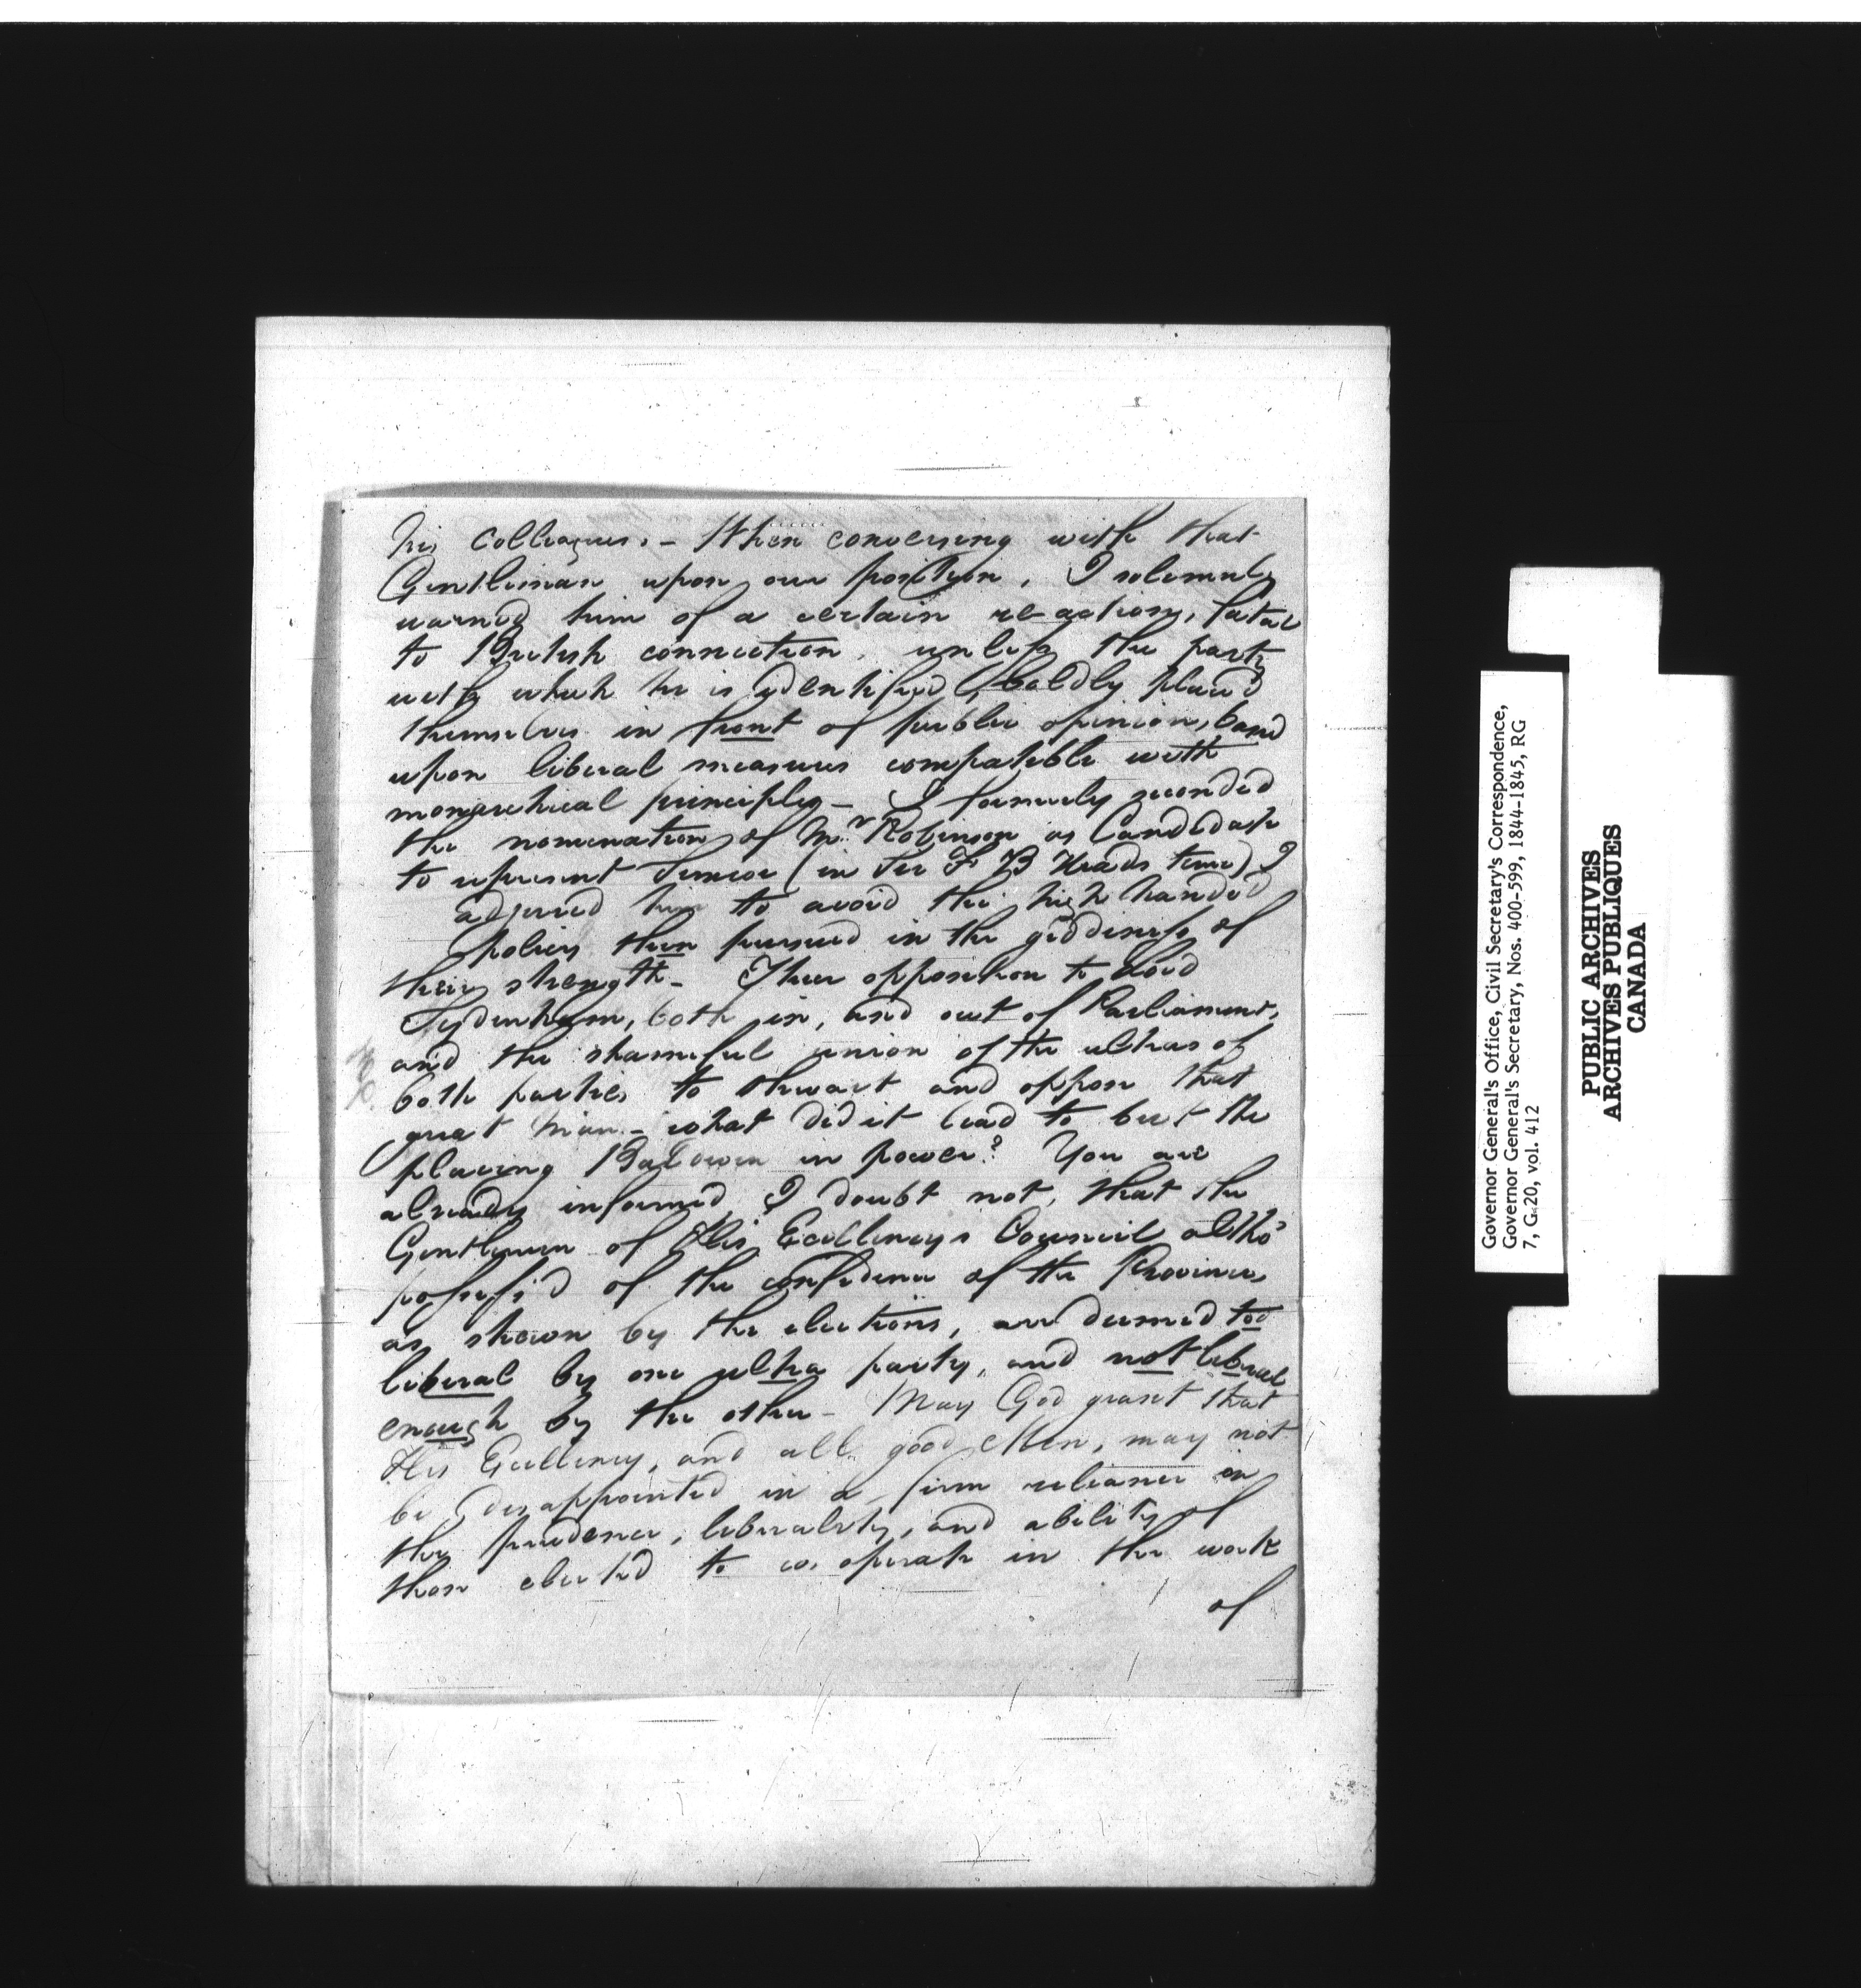 his Colleagues. – When conversing with that
Gentleman upon our position, I solemnly
warned him of a certain re-action, fatal
to British connection, unless the party
with which he is identified, boldly placed
themselves in front of public opinion, based
upon liberal measures compatible with
monarchical principles – I formerly seconded
the nomination of Mr Robinson as Candidate
to represent Simcoe (in Sir F B Heads time) I
adjured him to avoid the high handed
policy then pursued in the giddiness of
their strength – Their opposition to Lord
Sydenham, both in, and out of Parliament,
and the shameful union of the ultras of
both parties to thwart and oppose that
great Man – what did it lead to but the
placing Baldwin in power? You are
already informed, I doubt not, that the
Gentlemen of His Excellency's Council altho'
possess'd of the confidence of the Province
as shewn by the elections, are deemed too
liberal by one ultra party, and not liberal
enough by the other – May God grant that
His Excellency, and all good Men, may not
be disappointed in a firm reliance on
the prudence, liberality, and ability of
those elected to co. operate in the work
of
Governor General's Office, Civil Secretary's Correspondence,
Governor General's Secretary, Nos. 400-599, 1844-1845, RG
7, G 20, vol. 412
PUBLIC ARCHIVES
ARCHIVES PUBLIQUES
CANADA